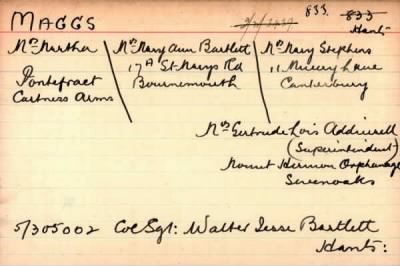 MAGGS 833. 833
Hants
Mrs Martha / Mrs Mary Ann Bartlett / Mrs Mary Stephens
Pontefract 17A St Marys Rd 11 Lane
Castness Arms Bournemouth Canterbury
Mrs Gertrude Lois
(Superintendent)
Mount Hermon Orphanage
Sevenoaks
5/305002 Col Sgt: Walter Jesse Bartlett
Hants: